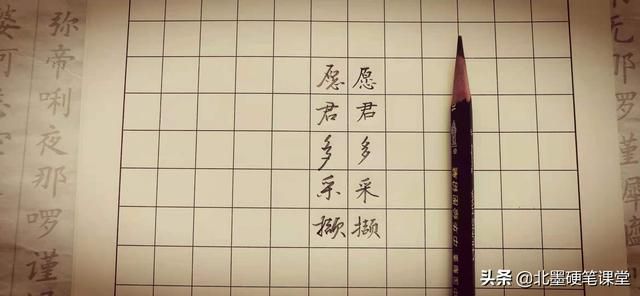 那啰谨
愿君多采撷
愿君多采撷
弥帝唎夜那啰谨
婆阿
头条 @北墨硬笔课堂